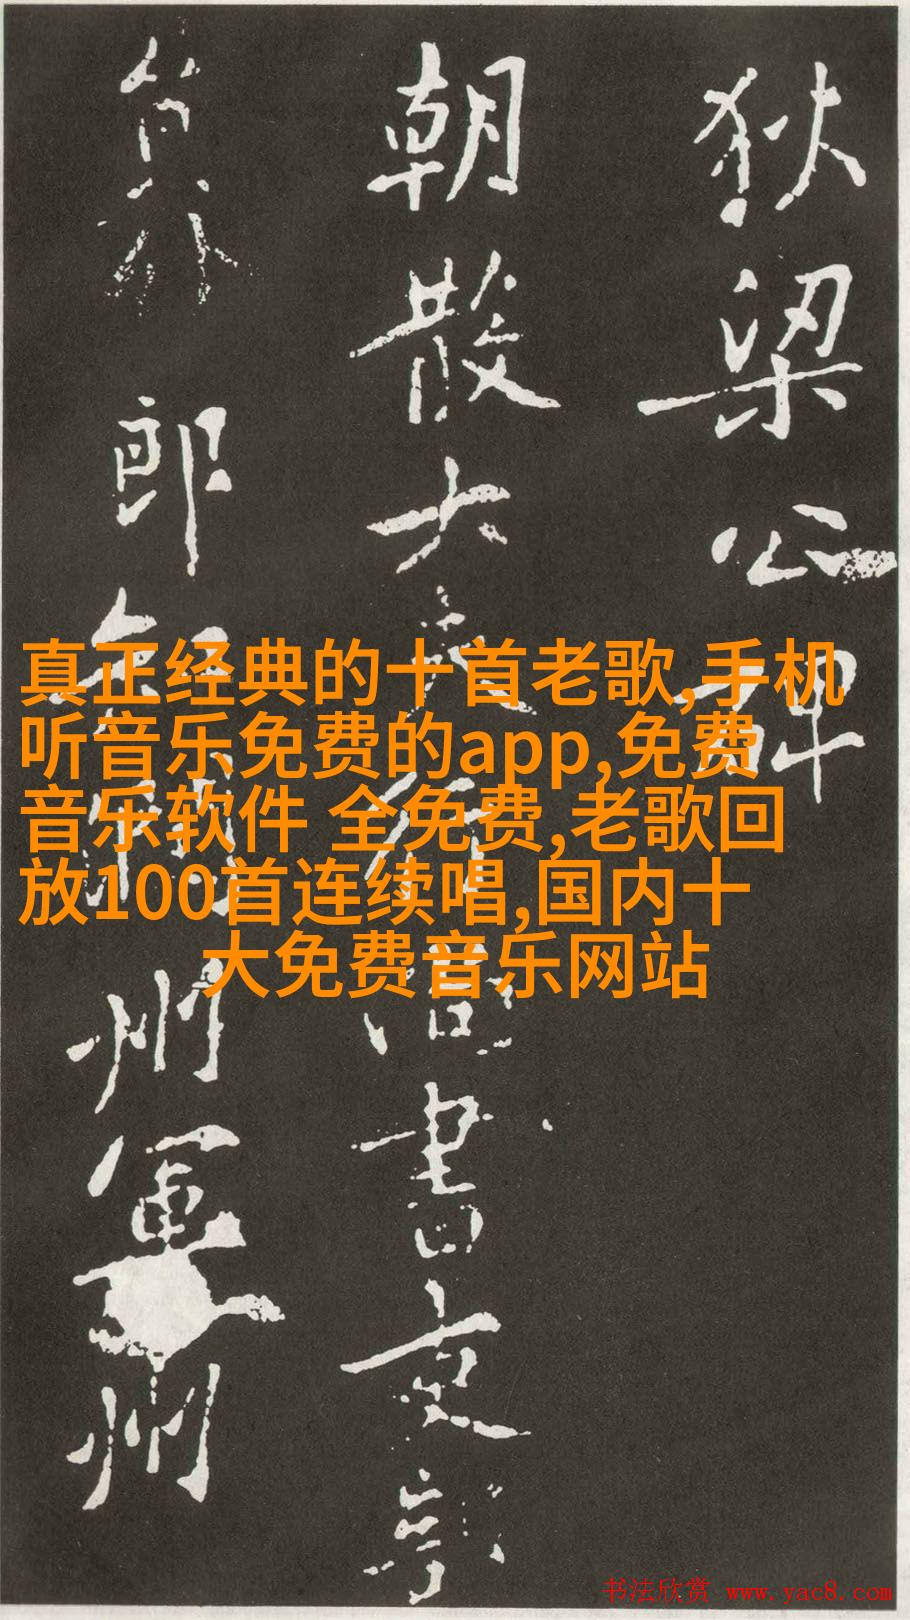 狄梁公碑
朝散大夫行書吏部
員外郎知州軍州
真正经典的十首老歌,手机
听音乐免费的app,免费
音乐软件 全免费,老歌回
放100首连续唱,国内十
大免费音乐网站
书法欣赏 www.yac8.com